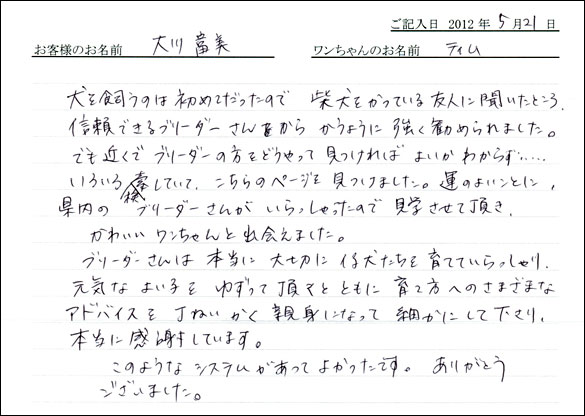 ご記入日 2012 年 5月 21 日
お客様のお名前 大川 富美 ワンちゃんのお名前 ティム
犬を飼うのは初めてだったので 柴犬をかっている友人に聞いたところ、
信頼できるブリーダーさんから かうように強く勧められました。
でも近くでブリーダーの方をどうやって見つければよいかわからず……
いろいろ検索していて、こちらのページを見つけました。運のよいことに、
県内の ブリーダーさんが いらっしゃったので見学させて頂き、
かわいいワンちゃんと出会えました。
ブリーダーさんは 本当に 大切に仔犬たちを育てていらっしゃり、
元気なよい子を ゆずって頂くとともに 育て方へのさまざまな
アドバイスを ていねいかく 親身になって 細かにして下さり、
本当に感謝しています。
このような システムがあってよかったです。 ありがとう
ございました。